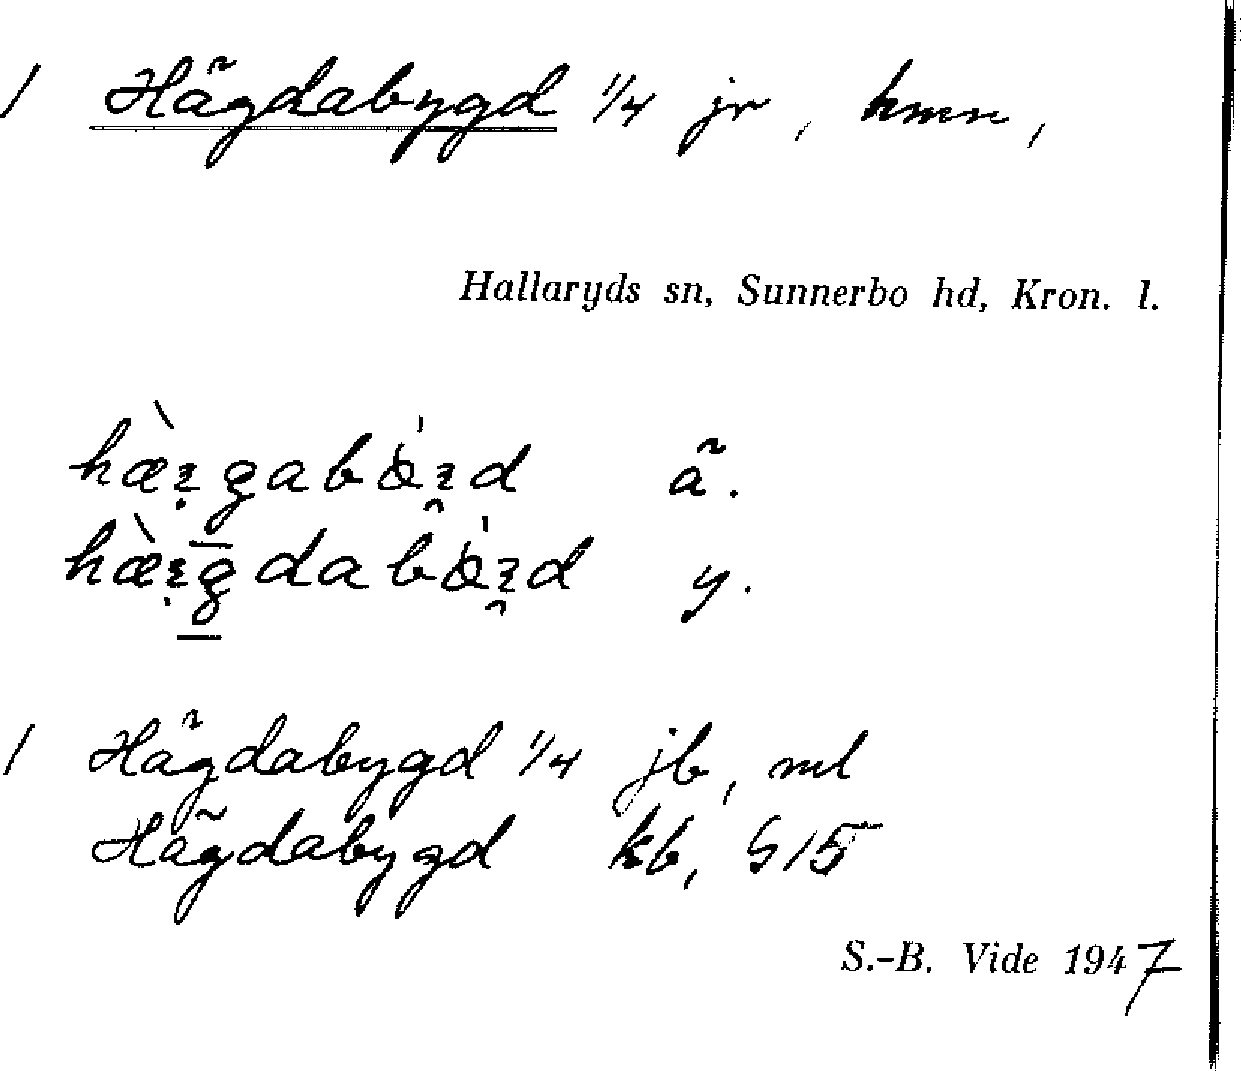 1 Hägdabygd 1/4 jr, hmn,
Hallaryds sn, Sunnerbo hd, Kron. l.
ä.
y.
1 Hägdabygd 1/4 jb, ml
Hägdabygd kb, S15
S.-B. Vide 1947